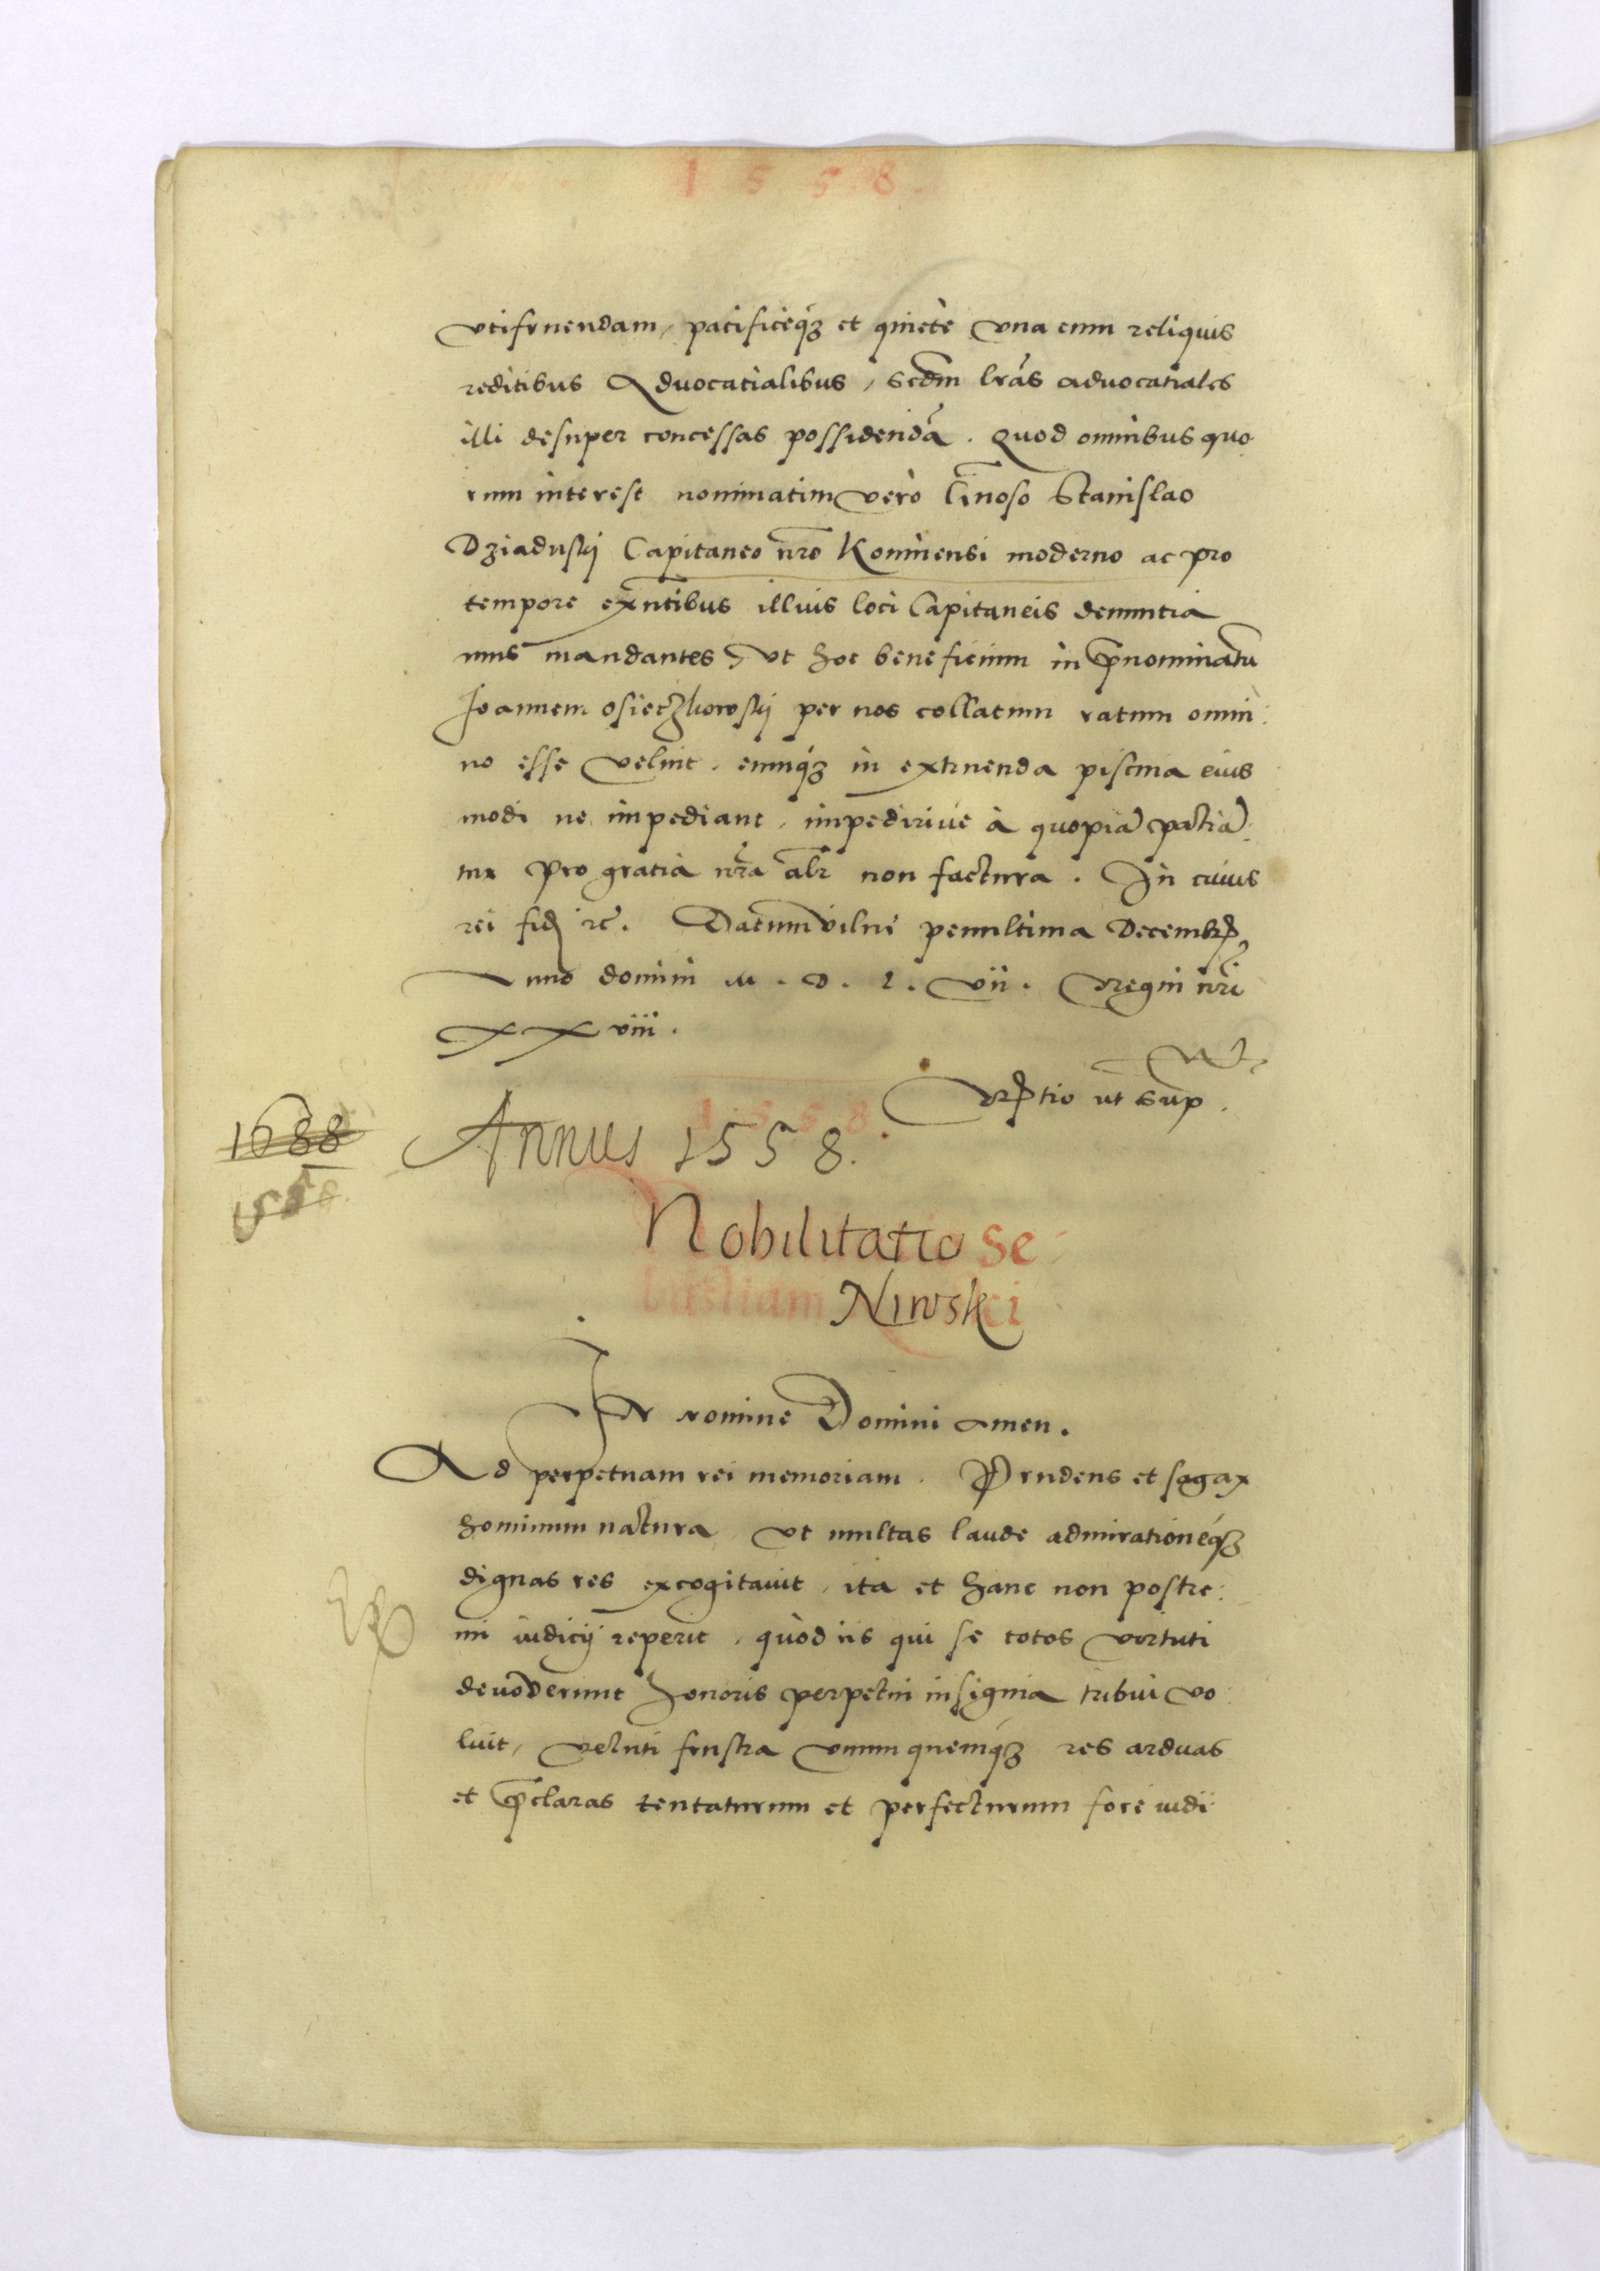 1 5 5 8.
vtifruendam, pacificeq₃ et quietè vna cum reliquis
reditibus Aduocatialibus, scdm lrãs aduocatiales
illi desuper concessas possidendã. Quod omnibus quo
rum interest nominatim verò Gñoso Stanislao
Dziaduskj Capitaneo nro Koninensi moderno ac pro
tempore exñtibus illius loci Capitaneis denuntia
mus mandantes, vt hoc beneficium in prænominatū
Joannem Osieczkowskj per nos collatum ratum omni:
no esse velint. eumq₃ in extruenda piscina eius
modi ne impediant, impedirive à quopiã patiã:
tur pro gratia nra alr non factura. In cuius
rei fid rc. Datum Vilnè penultima Decembr
Anno domini M. D. L. vii. Regni nri
XX viii.
ut sup.
1688
Annus 1558.
1558.
Nobilitatio Se
bastiani Niwskci
In nomine Domini amen.
Ad perpetuam rei memoriam. Prudens et sagax
hominum natura, vt multas laude admirationéq₃
dignas res excogitauit, ita et hanc non postre:
mi iudicij reperit, quòd iis qui se totos virtuti
devoderunt honoris perpetui insignia tribui vo
luit, veluti frustra vnum quemq₃ res arduas
et præclaras tentaturum et perfecturum fore iudi